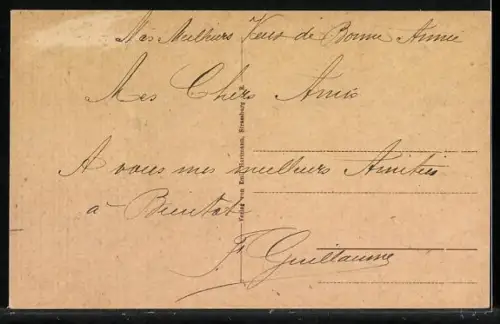 Mes Meilleurs Vœux de Bonne Année
Mes Chers Amis
A vous mes meilleurs Amitiés
à Bientot
Fr Guillaume
Verlag von Emil Hartmann, Strassburg